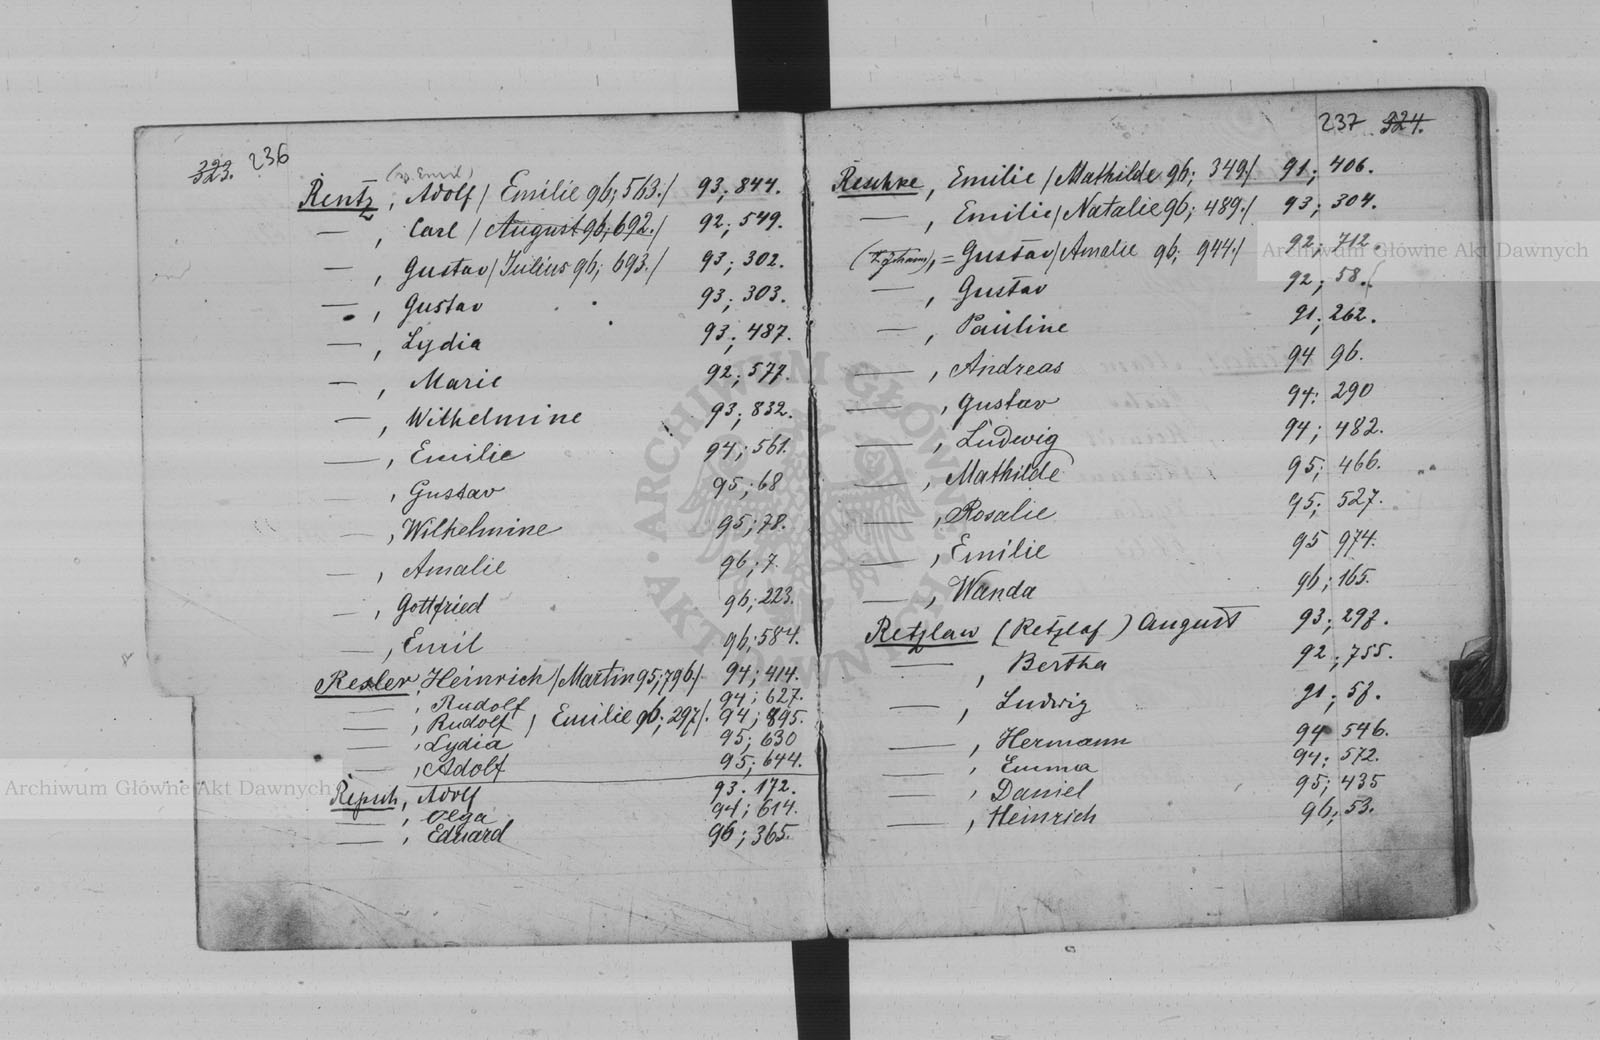 323. 236
(v. Emil)
Rentz, Adolf / Emilie 96; 563./ 93; 844.
— , Carl / August 96; 692./ 92; 549.
— , Gustav / Julius 96; 693./ 93; 302.
— , Gustav 93; 303.
— , Lydia 93; 487.
— , Marie 92; 577.
— , Wilhelmine 93; 832.
— , Emilie 94; 561.
— , Gustav 95; 68
— , Wilhelmine 95; 78.
— , Amalie 96; 7.
— , Gottfried 96; 223.
— , Emil 96; 584.
Resler, Heinrich / Martin 95; 796/ 94; 414.
— , Rudolf 94; 627.
— , Rudolf / Emilie 96; 297/. 94; 895.
— , Lydia 95; 630
— , Adolf 95; 644.
Repsch, Adolf 93. 172.
— , Olga 94; 614.
— , Eduard 96; 365.
237 324.
Reschke, Emilie / Mathilde 96; 349/ 91; 406.
— , Emilie / Natalie 96; 489./ 93; 304.
, = Gustav / Amalie 96; 944./ 92; 712.
— , Gustav 92; 58.
— , Pauline 91; 262.
— , Andreas 94 96.
— , Gustav 94; 290
— , Ludwig 94; 482.
— , Mathilde 95; 466.
— , Rosalie 95; 527.
— , Emilie 95 974.
— , Wanda 96; 165.
Retzlaw (Retzlaf) August 93; 298.
— , Bertha 92; 755.
— , Ludwig 91; 58.
— , Hermann 94 546.
— , Emma 94; 572.
— , Daniel 95; 435
— , Heinrich 96; 53.
Archiwum Główne Akt Dawnych
Archiwum Główne Akt Dawnych
Archiwum Główne Akt Dawnych
Archiwum Główne Akt Dawnych
ARCHIWUM GŁÓWNE AKT DAWNYCH